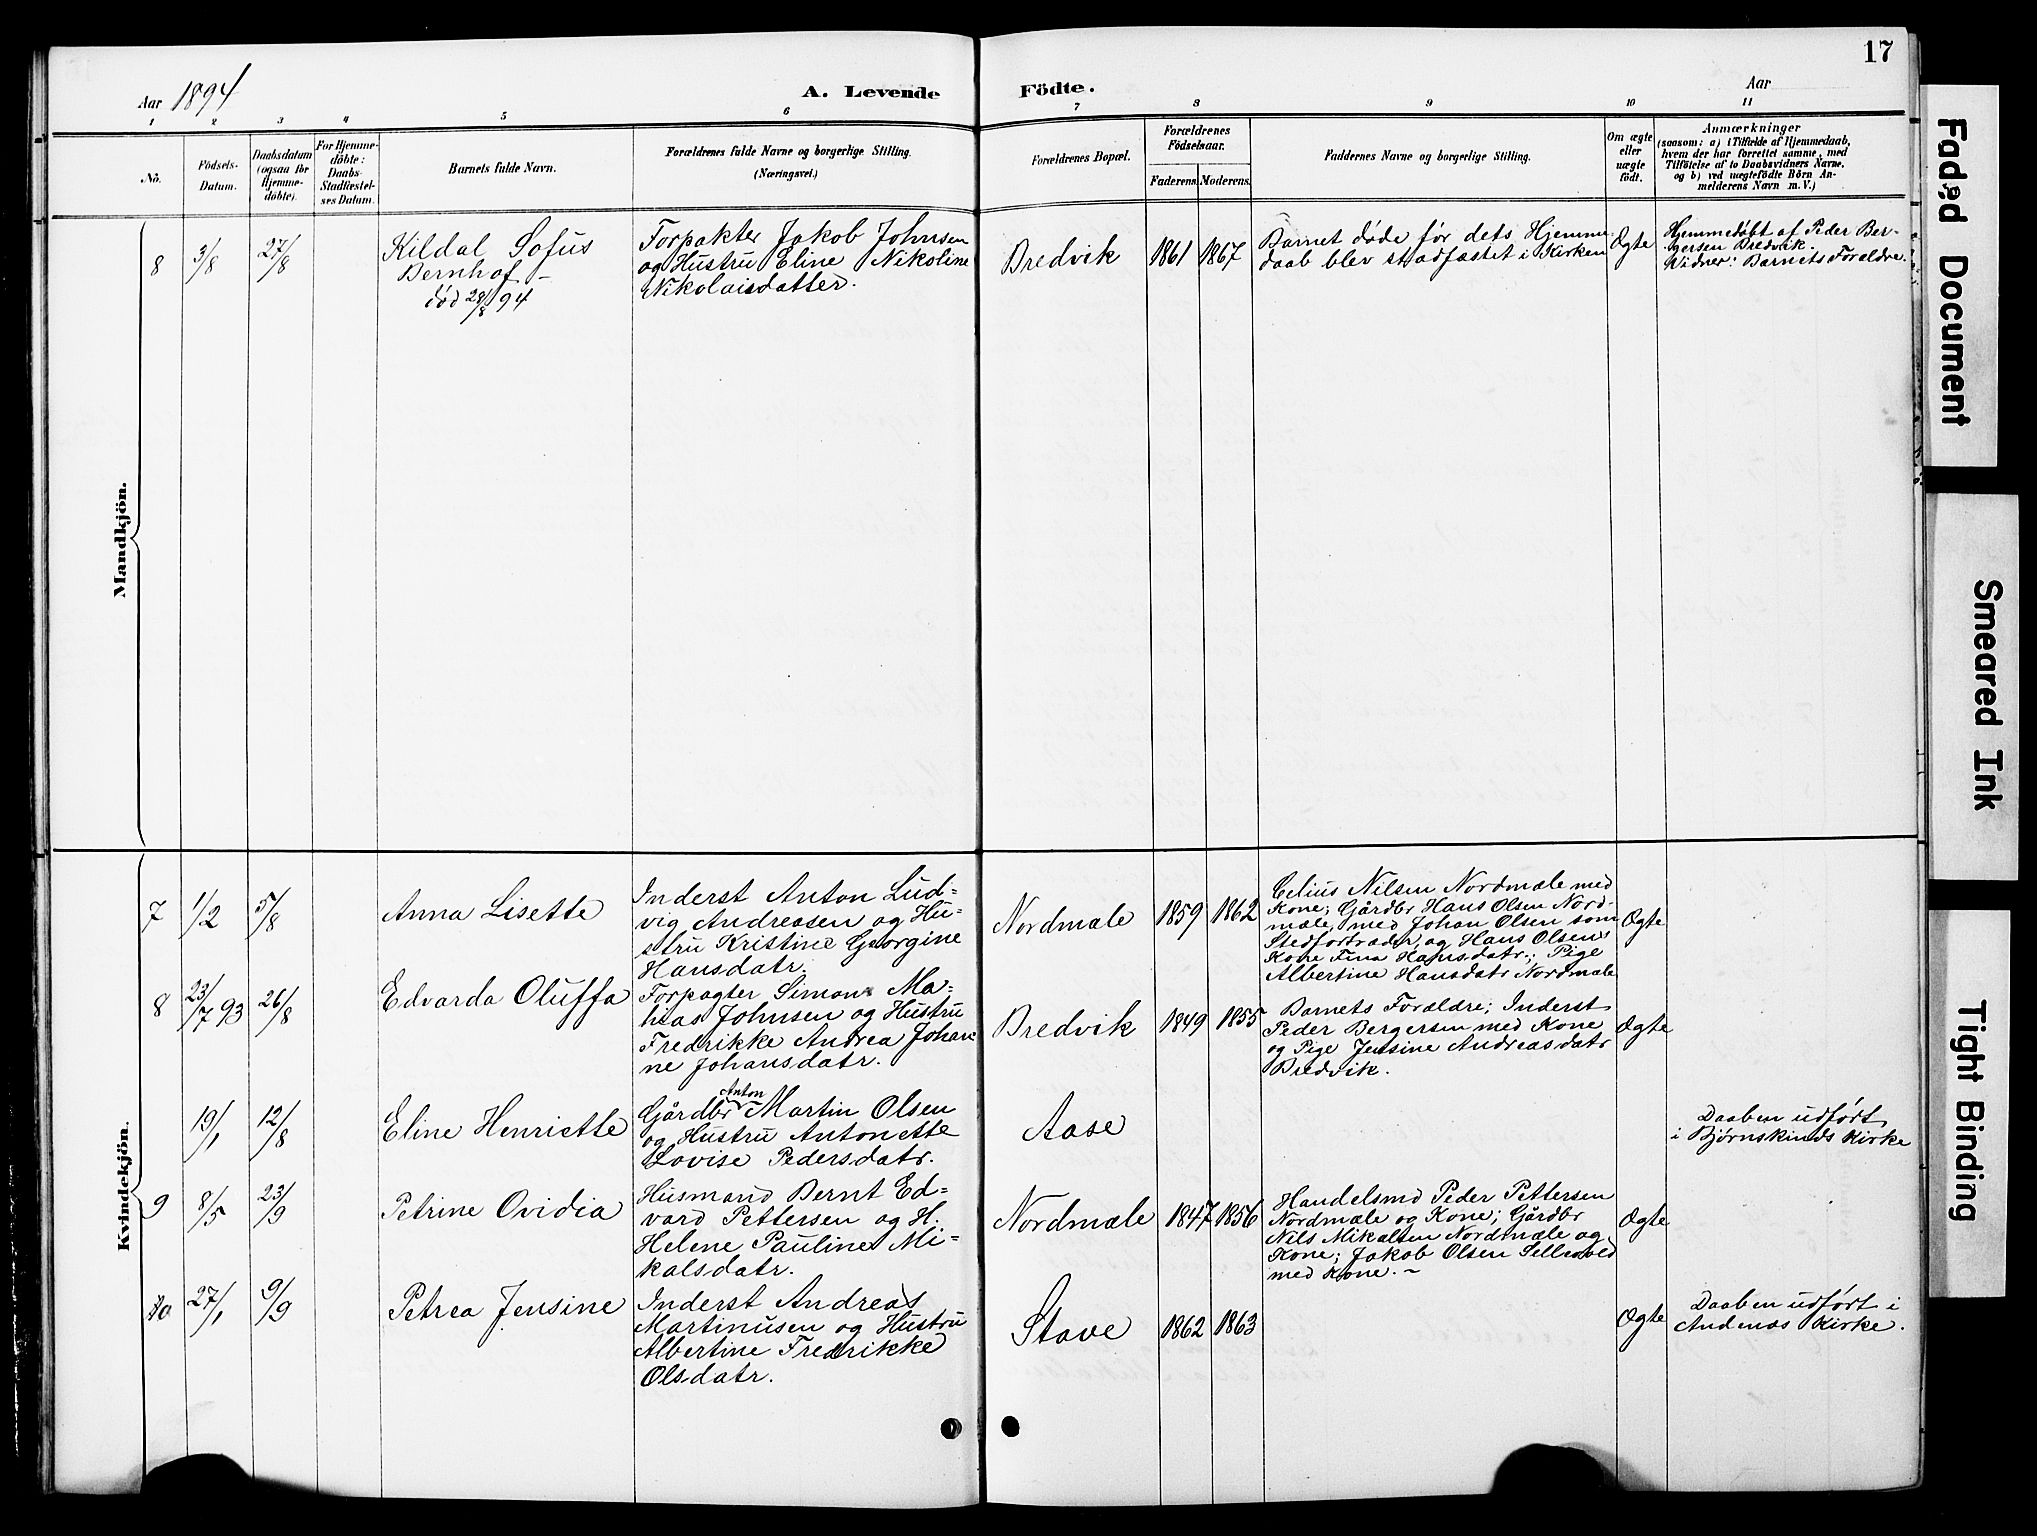 17
Aar 1894
A. Levende Födte.
Aar
1 2 3 4 5 6 7 8 9 10 11
No.
Födsels-
Datum.
Daabsdatum
(ogsaa for
Hjemme-
döbte).
For Hjemme-
döbte:
Daabs-
Stadfæstel-
ses Datum.
Barnets fulde Navn.
Forældrenes fulde Navne og borgerlige Stilling.
(Næringsvei.)
Forældrenes Bopæl.
Forældrenes
Födselsaar.
Faderens. Moderens.
Faddernes Navne og borgerlige Stilling.
Om ægte
eller
uægte
födt.
Anmærkninger
(saasom: a) i Tilfælde af Hjemmedaab,
hvem der har forrettet samme, med
Tilföielse af to Daabsvidners Navne,
og b) ved uægtefödte Börn An-
melderens Navn m. V.)
Mandkjön.
8
3/8
27/8
Kildal Sofus
Bernhof -
død 28/8 94
Forpakter Jakob Johnsen
og Hustru Eline Nikoline
Nikolaisdatter.
Bredvik
1861
1867
Barnet døde før dets Hjemme-
daab blev stadfæstet i Kirken
Ægte
Hjemmedøbt af Peder Ber-
gersen Bredvik.
Vidner: Barnets Forældre.
Kvindekjön.
7
1/2
5/8
Anna Lisette
Inderst Anton Lud-
vig Andreasen og Hu-
stru Kristine Georgine
Hansdatr.
Nordmæle
1859
1862
Celius Nilsen Nordmæle med
Kone; Gårdbr Hans Olsen Nord-
mæle, med Johan Olsen som
Stedfortræder, og Hans Olsens
Kone Fina Hansdatr.; Pige
Albertine Hansdatr Nordmæle
Ægte
8
23/7 93
26/8
Edvarda Oluffa
Forpagter Simon Ma-
hias Johnsen og Hustru
Fredrikke Andrea Johan
ne Johansdatr.
Bredvik
1849
1855
Barnets Forældre; Inderst
Peder Bergersen med Kone
og Pige Jensine Andreasdatr
Bredvik.
Ægte
19/1
12/8
Eline Henriette
Anton
Gårdbr Martin Olsen
og Hustru Antonette
Lovise Pedersdatr.
Aase
Daaben udført
i Bjørnskinds Kirke
9
8/5
23/9
Petrine Ovidia
Husmand Bernt Ed-
vard Pettersen og H.
Helene Pauline Mi-
kalsdatr.
Nordmæle
1847
1856
Handelsmd Peder Pettersen
Nordmæle og Kone; Gårdbr
Nils Mikalsen Nordmæle og
Kone; Jakob Olsen
med Kone. -
Ægte
10
27/1
9/9
Petrea Jensine
Inderst Andreas
Martinusen og Hustru
Albertine Fredrikke
Olsdatr.
Stave
1862
1863
Ægte
Daaben udført i
Andenæs Kirke.
Faded Document
Smeared Ink
Tight Binding